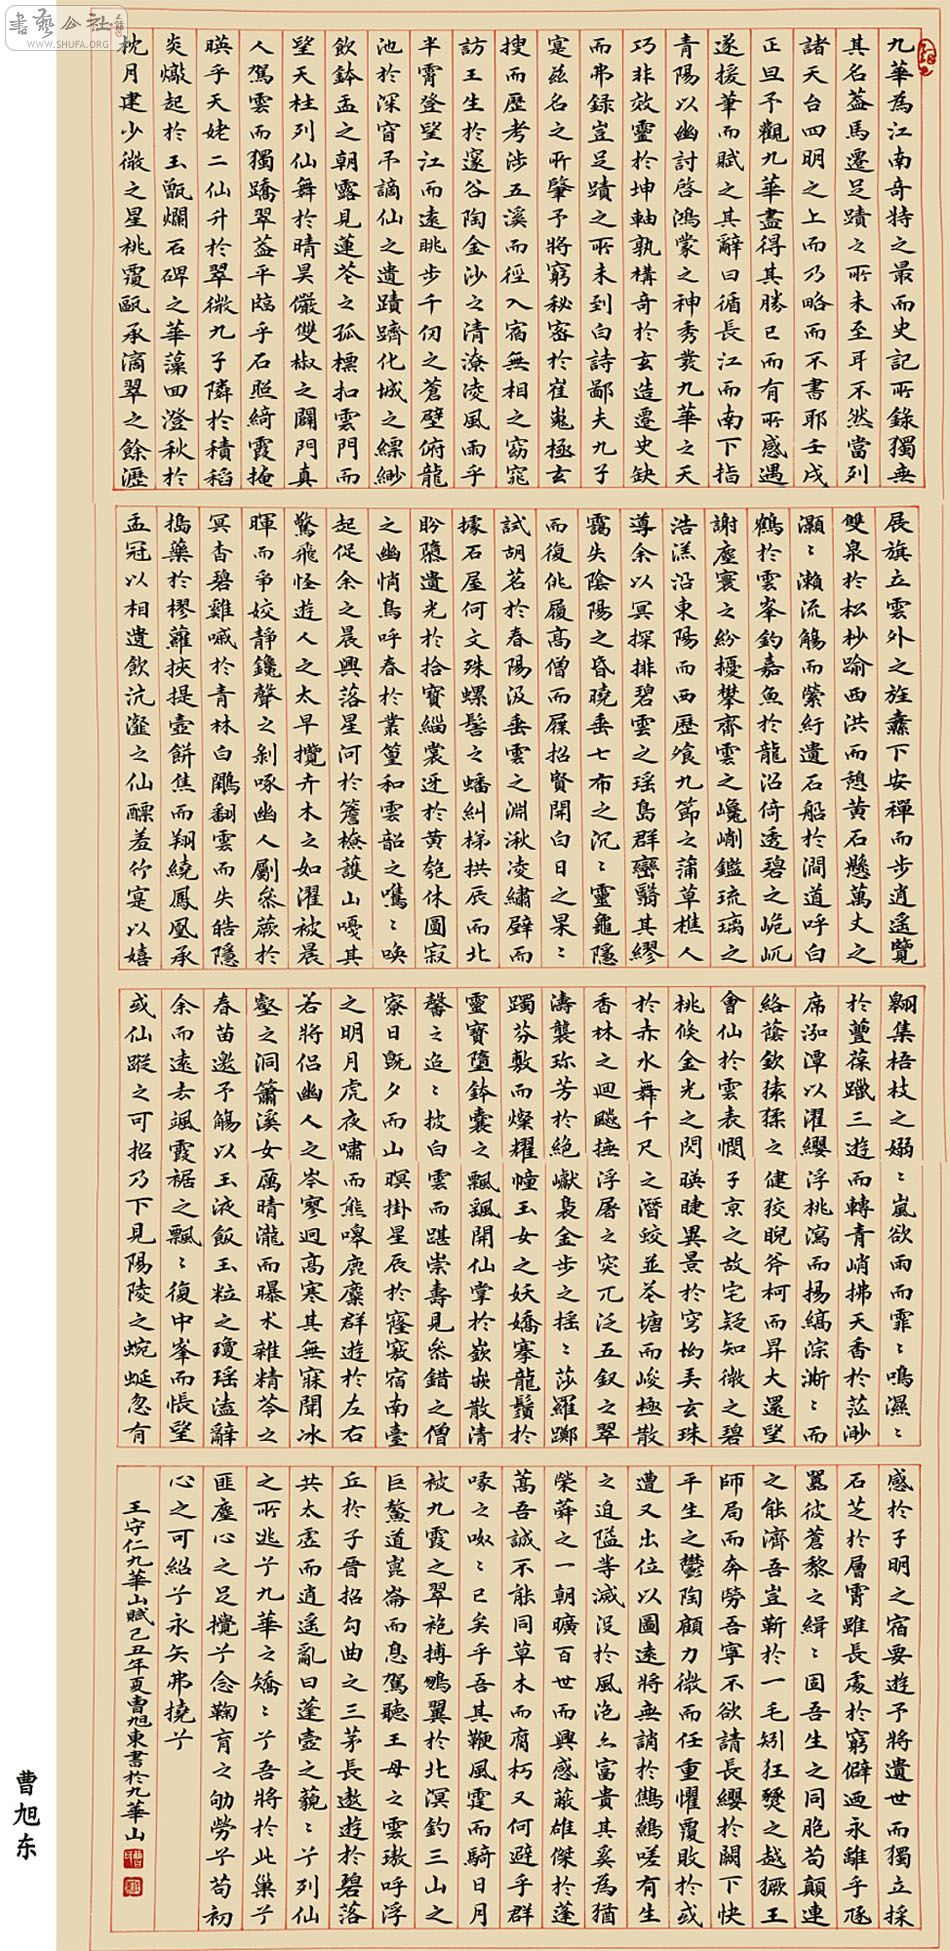 九華為江南奇特之最而史記所錄獨無
其名蓋馬遷足蹟之所未至耳不然當列
諸天台四明之上而乃略而不書耶壬戌
正旦予觀九華盡得其勝已而有所感遇
遂援筆而賦之其辭曰循長江而南下指
青陽以幽討啓鴻蒙之神秀發九華之天
巧非效靈於坤軸孰構奇於玄造遷史缺
而弗録豈足蹟之所未到白詩鄙夫九子
寔茲名之所肇予將窮秘密於崔嵬極玄
搜而歷考涉五溪而徑入宿無相之窈窕
訪王生於邃谷陶金沙之清潦淩風雨乎
半霄登望江而遠眺步千仞之蒼壁俯龍
池於深窅弔謫仙之遺蹟躋化城之縹緲
飲鉢盂之朝露見蓮花之孤標扣雲門而
望天柱列仙舞於晴昊儼雙椒之闢門真
人駕雲而獨蹻翠蓋平臨乎石照綺霞掩
暎乎天姥二仙升於翠微九子隣於積稻
炎歊起於玉甑爛石碑之華藻回澄秋於
枕月建少微之星桃覆甌承滴翠之餘瀝
展旗立雲外之旌纛下安禪而步逍遙覽
雙泉於松杪踰西洪而憩黃石懸萬丈之
灝々瀨流觴而縈紆遺石船於澗道呼白
鶴於雲峯釣嘉魚於龍沼倚透碧之峗屼
謝塵寰之紛擾攀齊雲之巉峭鑑琉璃之
浩漾沿東陽而西歷飧九節之蒲草樵人
導余以冥探排碧雲之瑤島群巒翳其繆
靄失陰陽之昏曉垂七布之沉々靈龜隱
而復佻履高僧而屧招賢開白日之杲々
試胡茗於春陽汲垂雲之淵湫凌繡壁而
據石屋何文殊螺髻之蟠糾梯拱辰而北
盼隳遺光於拾寶緇裳迓於黃匏休圓寂
之幽悄鳥呼春於叢篁和雲韶之鷕々喚
起促余之晨興落星河於簷橑護山嘎其
驚飛怪遊人之太早攬卉木之如濯被晨
暉而爭姣靜鑱聲之剝啄幽人劚參蕨於
冥杳碧雞嘁於青林白鷴翻雲而失皓隱
搗藥於樛蘿挾提壺餅焦而翔繞鳳凰承
盂冠以相遺飲沆瀣之仙醥羞竹寔以嬉
翺集梧枝之嫋々嵐欲雨而霏々鳴濕々
於豐葆躐三遊而轉青峭拂天香於茫渺
席泓潭以濯纓浮桃瀉而揚縞淙澌々而
絡蔭飲猿猱之健狡睨斧柯而昇大還望
會仙於雲表憫子京之故宅疑知微之碧
桃倏金光之閃暎睫異景於穹坳弄玄珠
於赤水舞千尺之潛蛟並花塘而峻極散
香林之迴飈撫浮屠之突兀泛五釵之翠
濤襲珎芳於絕巘裊金步之搖々莎羅躑
躅芬敷而燦耀幢玉女之妖嬌搴龍鬚於
靈寶墮鉢囊之飄颻開仙掌於嶔嵌散清
馨之迢々披白雲而踞崇壽見參錯之僧
寮日既夕而山暝掛星辰於窿窽宿南臺
之明月虎夜嘯而熊嗥鹿麋群遊於左右
若將侶幽人之岑寥迥高寒其無寐聞冰
壑之洞簫溪女厲晴瀧而曝朮雜精苓之
春苗邀予觴以玉液飯玉粒之瓊瑤溘辭
余而遠去颯霞裾之飄々復中峯而悵望
或仙蹤之可招乃下見陽陵之蜿蜒忽有
感於子明之宿要遊予將遺世而獨立採
石芝於層霄雖長處於窮僻迺永離乎豗
囂彼蒼黎之緝々固吾生之同胞苟顛連
之能濟吾豈靳於一毛矧狂獠之越獗王
師局而奔勞吾寧不欲請長纓於闕下快
平生之鬱陶顧力微而任重懼覆敗於或
遭又出位以圖遠將無誚於鷦鷯嗟有生
之迫隘等滅沒於風泡亦富貴其奚為猶
榮蕣之一朝曠百世而興感蔽雄傑於蓬
蒿吾誠不能同草木而腐朽又何避乎群
喙之呶々已矣乎吾其鞭風霆而騎日月
被九霞之翠袍搏鵬翼於北溟釣三山之
巨鰲道崑崙而息駕聽王母之雲璈呼浮
丘於子晉招勾曲之三茅長遨遊於碧落
共太虛而逍遙亂曰蓬壺之藐々兮列仙
之所逃兮九華之矯々兮吾將於此巢兮
匪塵心之足攪兮念鞠育之劬勞兮苟初
心之可紹兮永矢弗撓兮
王守仁九華山賦己丑年夏曹旭東書於九華山
曹旭东
書藝公社
WWW.SHUFA.ORG